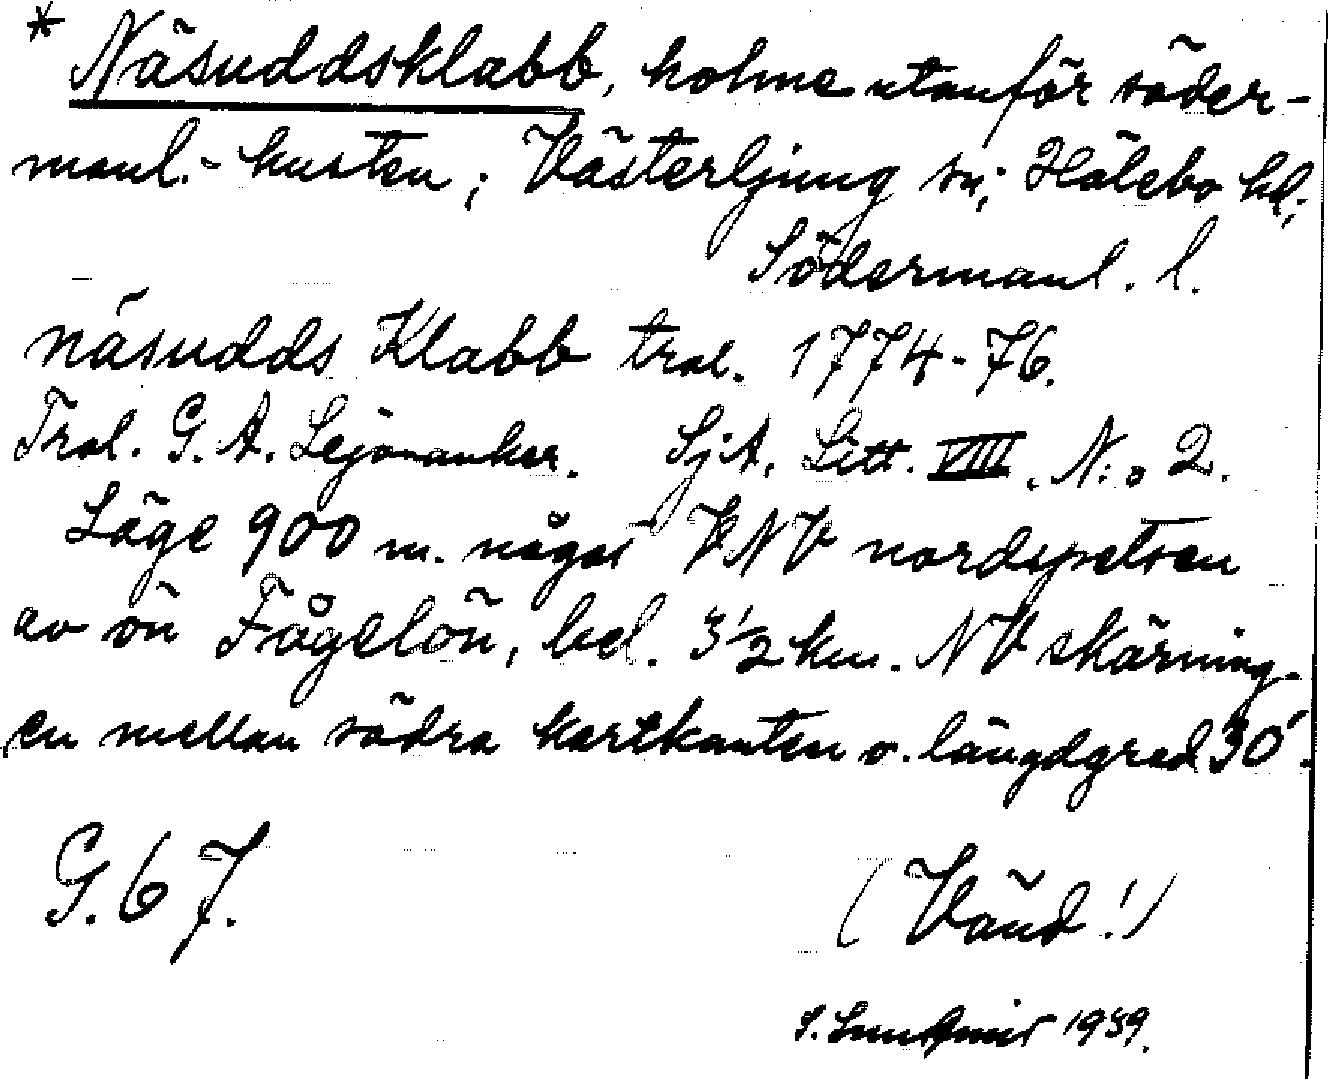 * Näsuddsklabb, holme utanför söder-
manl.-kusten; Västerljung sn; Hölebo hd;
Södermanl. l.
näsudds Klabb trol. 1774-76.
Trol. G. A. Lejonanker. SjA. Litt. VIII. N:o 2.
Läge 900 m. något VNV nordspetsen
av ön Fågelön, bel. 3 1/2 km. NV skärning-
en mellan södra kartkanten o. längdgrad 30'.
G. 67.
(Vänd!)
1939.